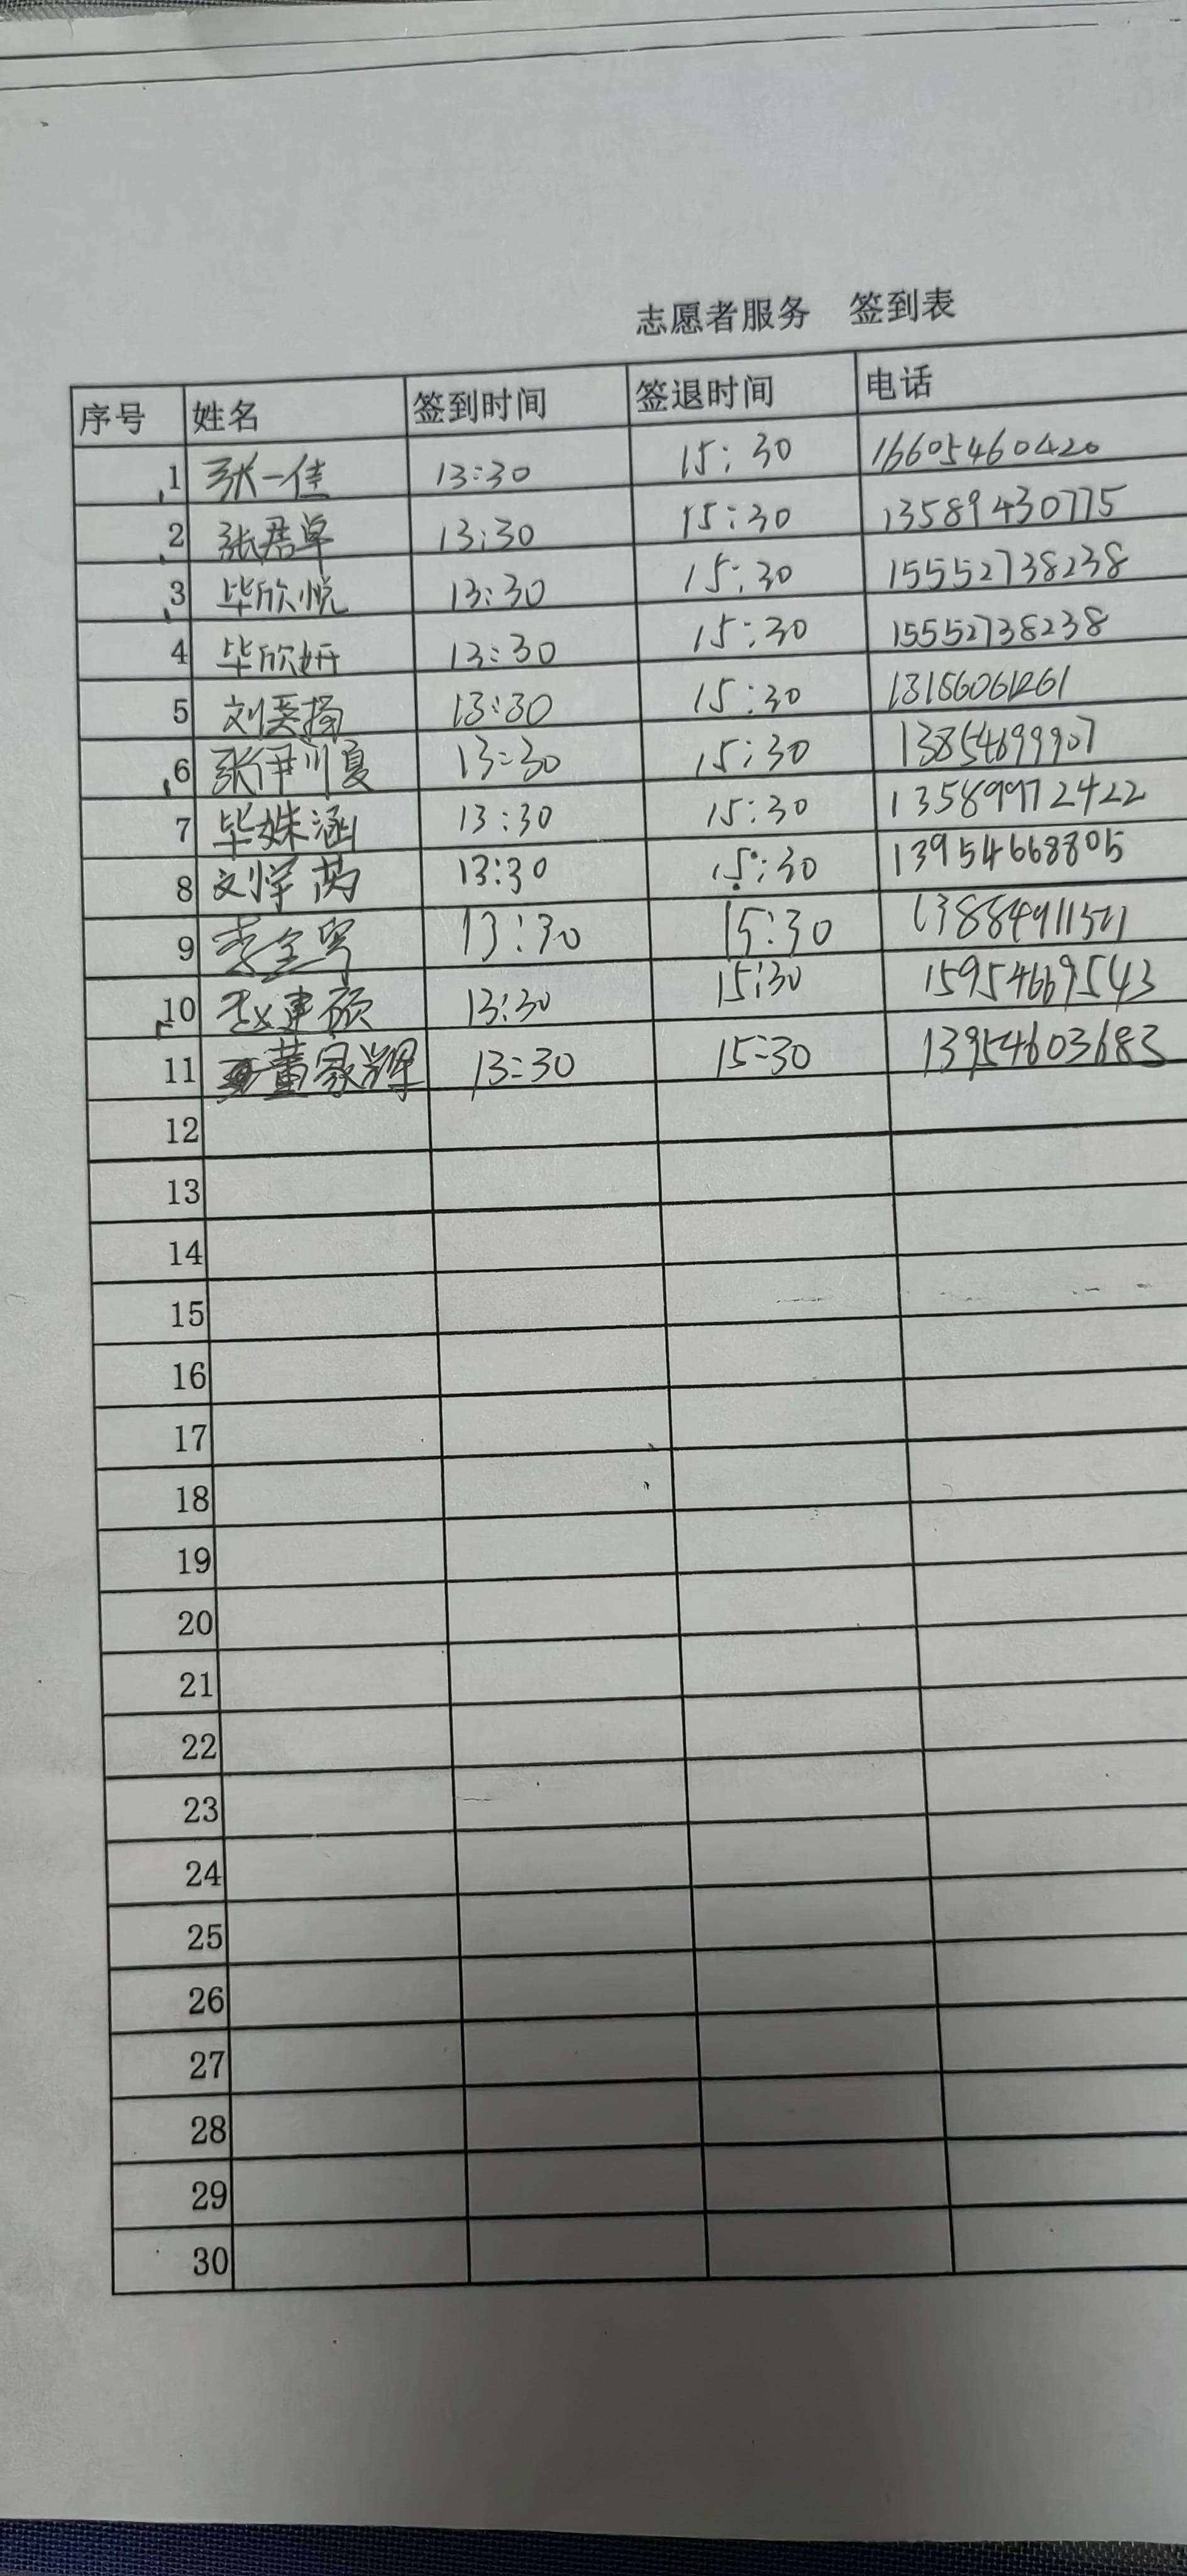 志愿者服务 签到表
序号 姓名 签到时间 签退时间 电话
1 张一佳 13:30 15:30 16605460420
2 张君卓 13:30 15:30 13589430775
3 毕欣悦 13:30 15:30 15552738238
4 毕欣妍 13:30 15:30 15552738238
5 刘奕扬 13:30 15:30 13156061261
6 张伊川夏 13:30 15:30 13854699907
7 毕姝涵 13:30 15:30 13589972422
8 刘学芮 13:30 15:30 13954668805
9 李 13:30 15:30
10 赵建硕 13:30 15:30 15954669543
11 董家辉 13:30 15:30 13954603683
12
13
14
15
16
17
18
19
20
21
22
23
24
25
26
27
28
29
30